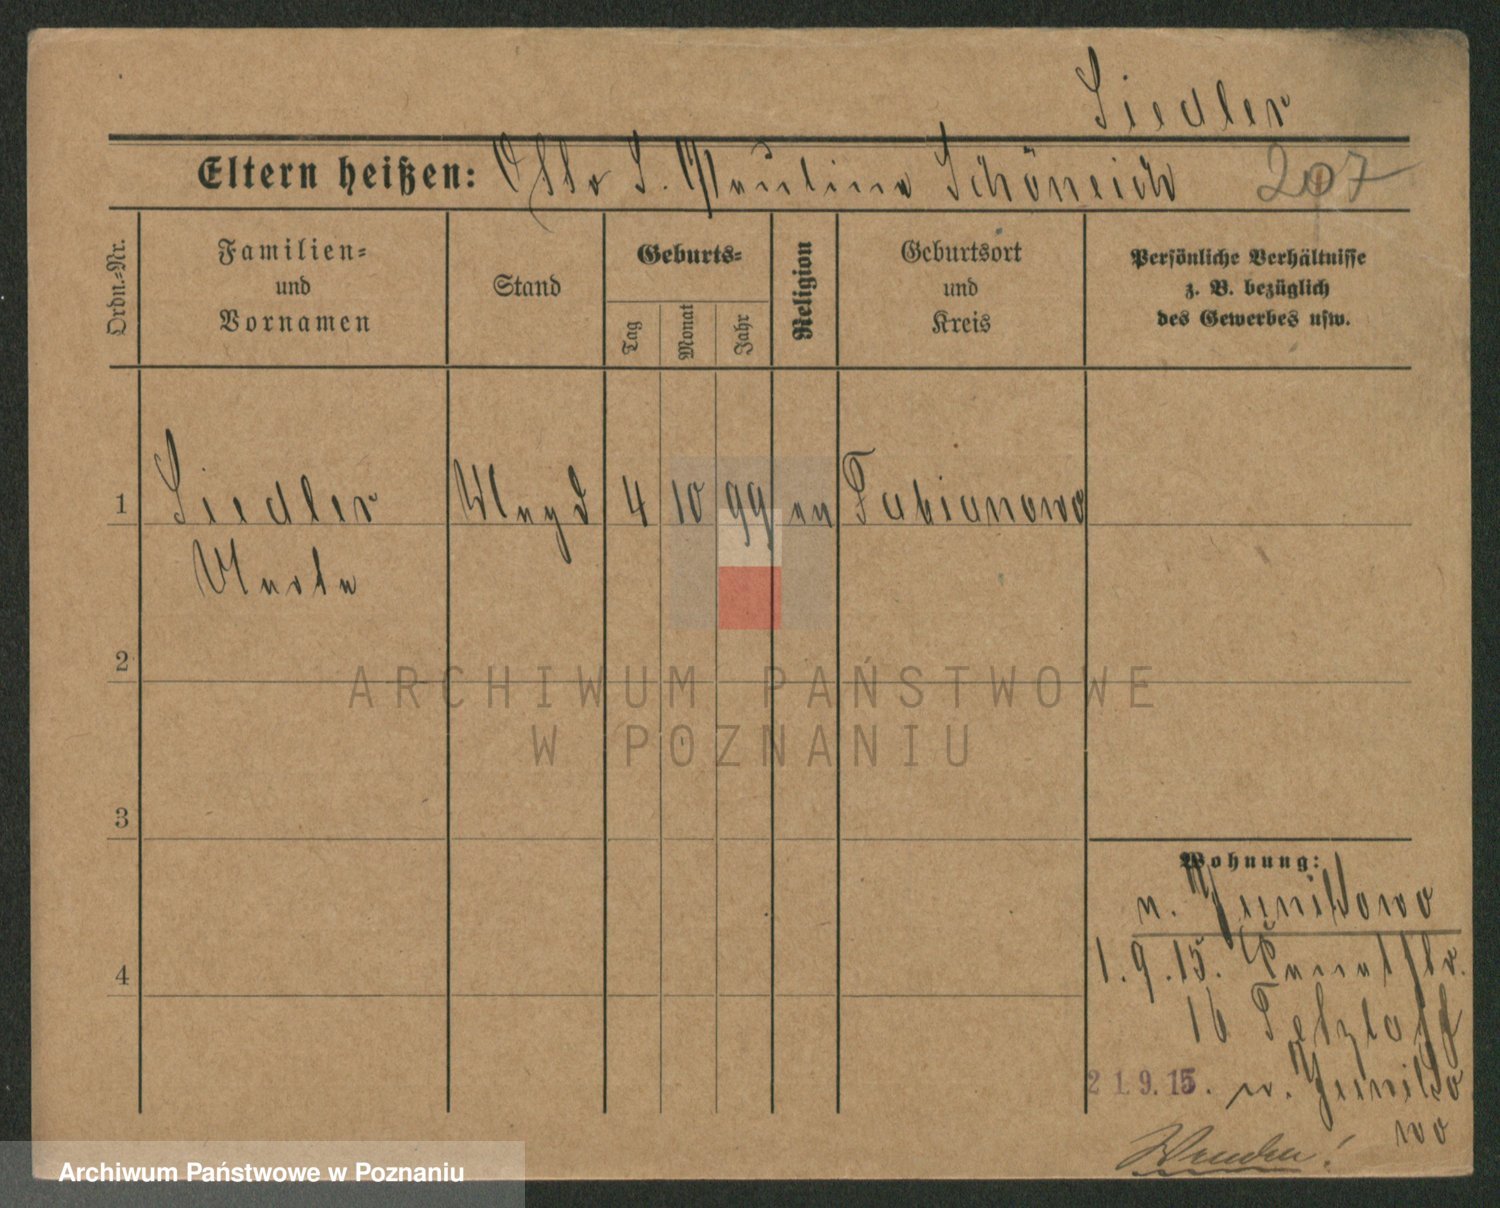 Siedler
Eltern heißen: Otto S. Pauline Schöneich 207
Ordn.-Nr.
Familien-
und
Vornamen
Stand
Geburts-
Tag
Monat
Jahr
Religion
Geburtsort
und
Kreis
Persönliche Verhältnisse
z. B. bezüglich
des Gewerbes usw.
1 Siedler Magd 4 10 99 ev Fabianowo
Marta
2
ARCHIWUM PAŃSTWOWE
W POZNANIU
3
Wohnung:
n. Junikowo
4
1.9.15.
16
21.9.15. n. Juniko
wo
Wenden!
Archiwum Państwowe w Poznaniu